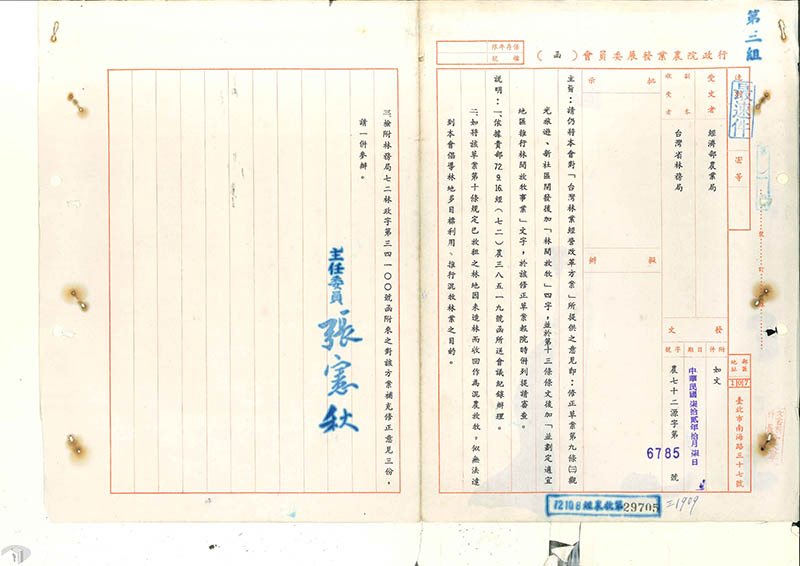 第三組
行政院農業發展委員會（函）
保存年限
檔號
速別
最速件
密等
受文者
副本收受者
經濟部農業局
台灣省林務局
批示
擬辦
發文
附件
如文
日期
中華民國柒拾貳年拾月柒日
字號
農七十二源字第6785號
郵區
107
地址
臺北市南海路三十七號
主旨：請仍將本會對「台灣林業經營改革方案」所提供之意見即：修正草案第九條㈢觀
光旅遊、新社區開發後加「林間放牧」四字，並於第十三條條文後加「並劃定適宜
地區推行林間放牧事業」文字，於該修正草案報院時併列提請審查。
說明：一、依據貴部72.9.16.經（七二）農三八五一九號函所送會議紀錄辦理。
二、如將該草案第十條規定已放租之林地因未造林而收回作為混農放牧，似無法達
到本會倡導林地多目標利用、推行混牧林業之目的。
72108經農收第29705
三1909
三、檢附林務局七二林政字第三四一○○號函附來之對該方案補充修正意見三份，
請一併參辦。
主任委員 張憲秋